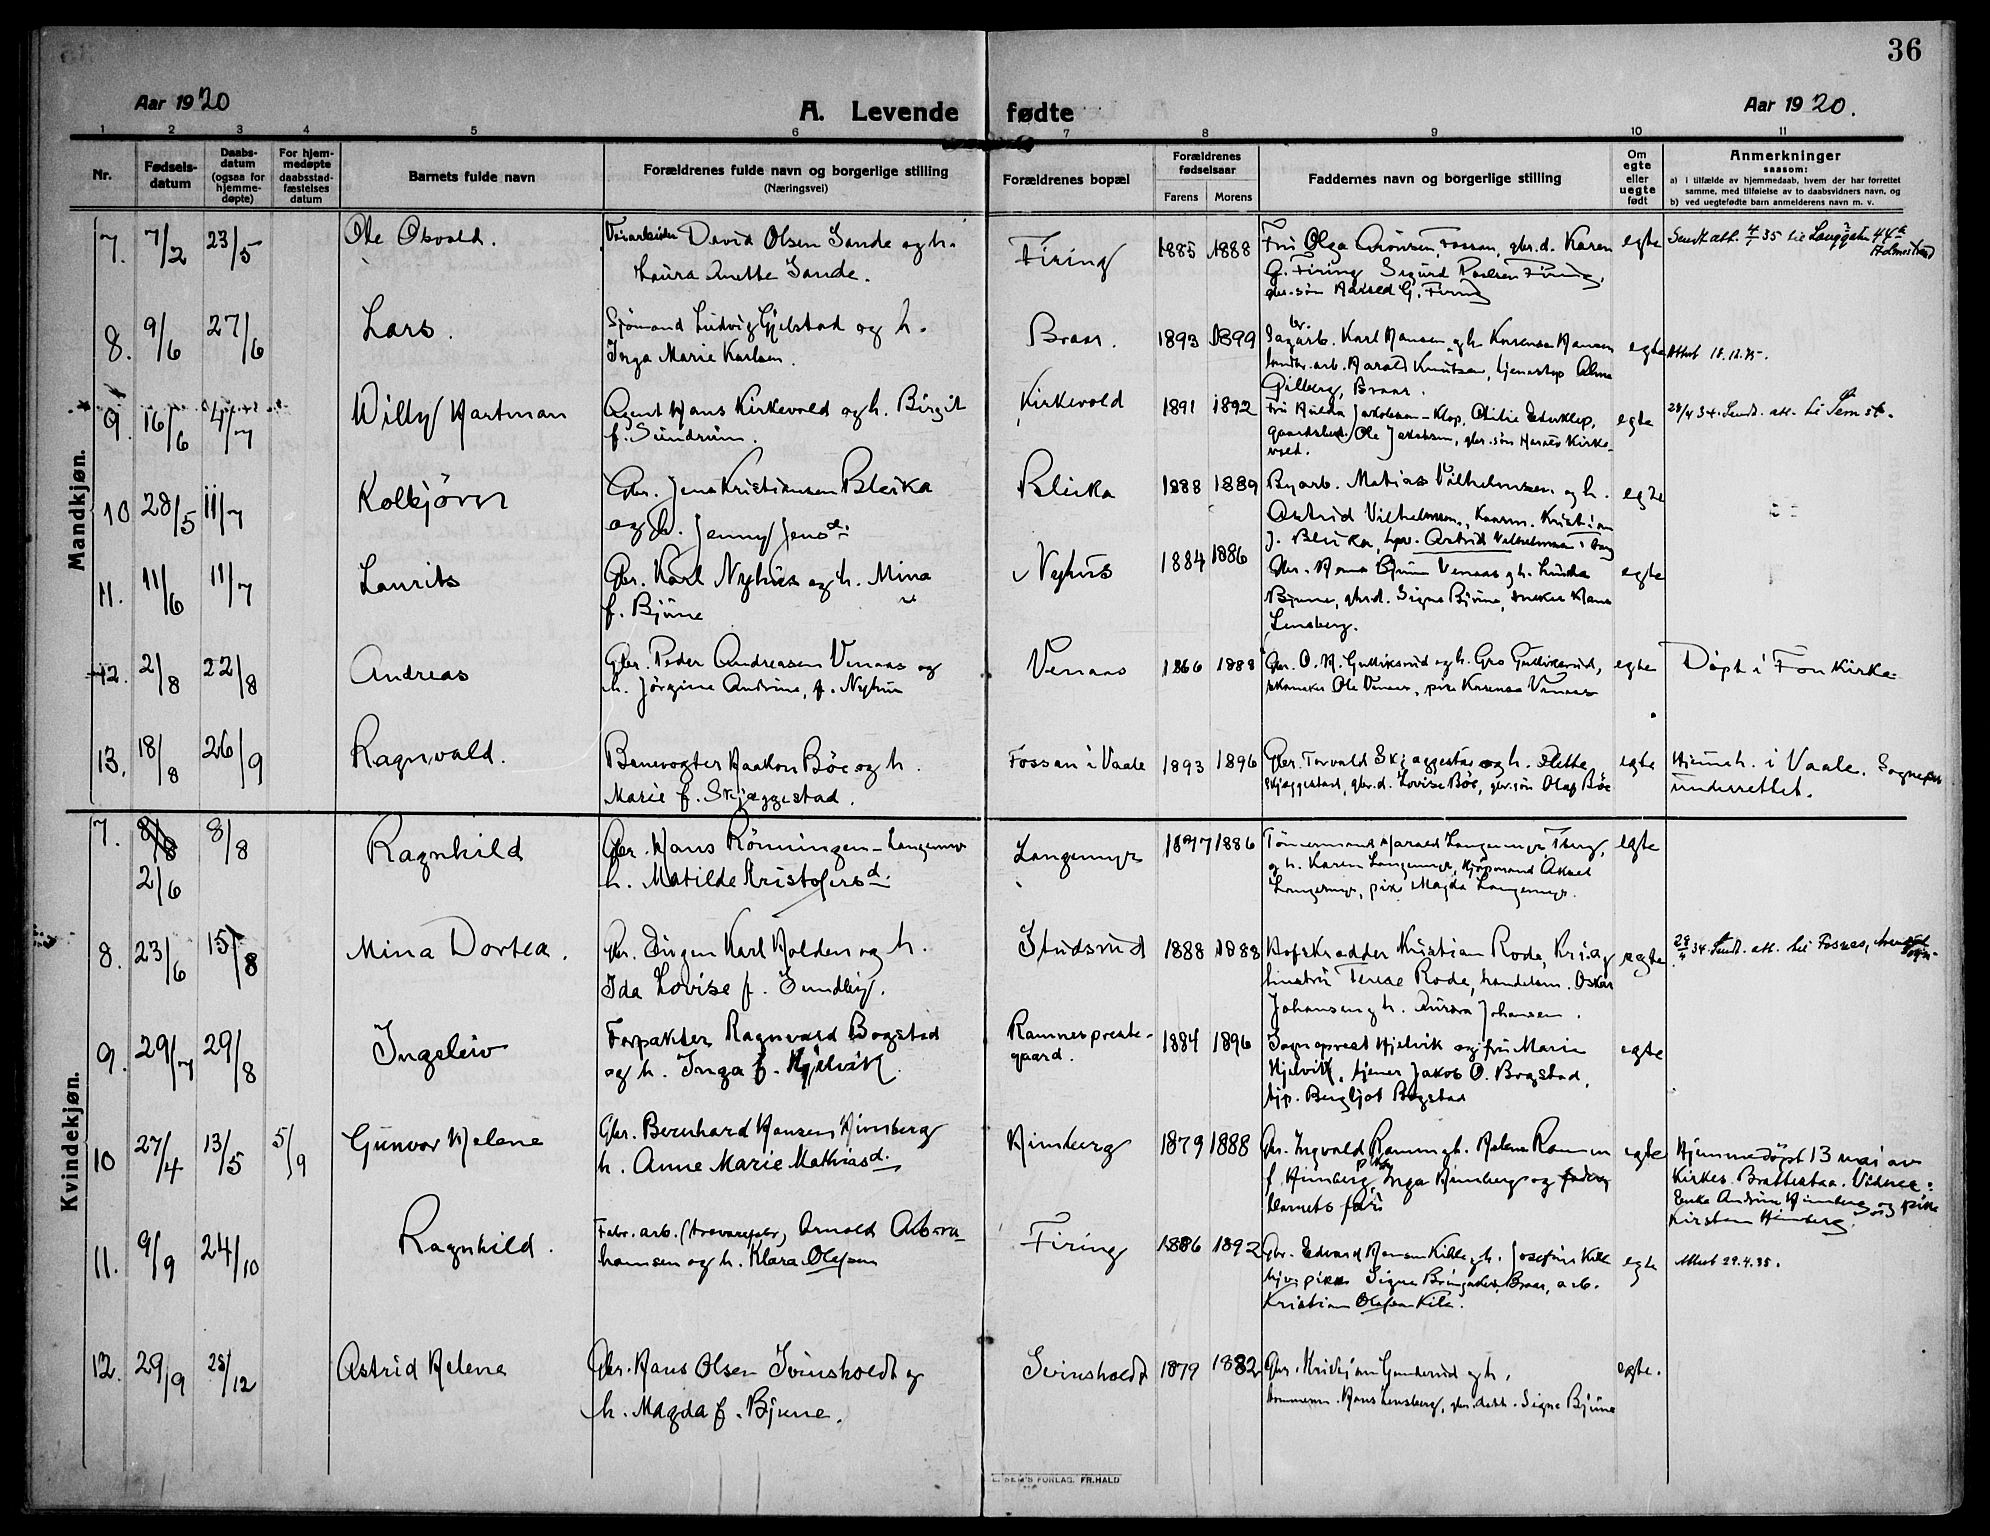 36
Aar 1920
A. Levende fødte
Aar 1920.
1 2 3 4 5 6 7 8 9 10 11
Nr.
Fødsels-
datum
Daabs-
datum
(ogsaa for
hjemme-
døpte)
For hjem-
medøpte
daabsstad-
fæstelses
datum
Barnets fulde navn
Forældrenes fulde navn og borgerlige stilling
(Næringsvei)
Forældrenes bopæl
Forældrenes
fødselsaar
Farens Morens
Faddernes navn og borgerlige stilling
Om
egte
eller
uegte
født
Anmerkninger
saasom:
a) i tilfælde av hjemmedaab, hvem der har forrettet
samme, med tilføielse av to daabsvidners navn, og
b) ved uegtefødte barn anmelderens navn m. v.
Mandkjøn.
7. 7/2 23/5 Ole Osvald.
Veiarbeider David Olsen Sande og h.
Laura Anette Sande.
Firing 1885 1888
Fru Olga Aronsen, Fossan, gbr.d. Karen
G. Firing, Sigurd Paulsen Firing,
gbr.søn Aksel G. Firing
egte
Sendt att. 4/7 35 til Langgaten 44
Holmestrand
8. 9/6 27/6 Lars.
Sjømand Ludvig Gjelstad og h.
Inga Marie Karlsen.
Braar. 1893 1899
Sagarb. Karl Hansen og h. Karensa Hansen
landbr.arb. Harald Knutsen, tjenestep. Alma
Gilberg, Braar.
egte
Attest 18.12.45.
9. 16/6 4/7 Willy Hartman
Agent Hans Kirkevold og h. Birgit
f. Sundrum.
Kirkevold 1891 1892
Fru Hulda Jakobsen - Klop,
Ole Jakobsen, gbr. søn Hansen Kirke-
vold.
egte
28/4 34. Sendt. att. til Sem st.
10 28/5 11/7 Kolbjørn
Gbr. Jens Kristiansen Bleika
og h. Jenny Jensd.
Bleika 1888 1889
Byarb. Matias Vilhelmsen og h.
Astrid Vilhelmsen, Kaarm. Kristian
J. Bleika, Astrid Vilhelmsen
egte
11. 11/6 11/7 Laurits
Gbr. Karl Nyhus og h. Mina
f. Bjune
Nyhus 1884 1886
Gbr. Hans Bjune Venaas og h. Lovisa
Bjune, gbr.d. Signe Bjune, Hans
Lensberg.
egte
12. 2/8 22/8 Andreas
Gbr. Peder Andreasen Venaas og
h. Jørgine Andrine, f. Nyhus
Venaas 1866 1888
Gbr. O. H. Gulliksrud og h. Gro Gulliksrud,
skomaker Ole Venaas, pike Karensa Venaas
egte
Døpt i Fon Kirke.
13. 18/8 26/9 Ragnvald.
Banevogter Haakon Bøe og h.
Marie f. Skjæggestad.
Fossan i Vaale 1893 1896
Gbr. Torvald Skjæggestad og h.
Skjæggestad, gbr.d. Lovise Bøe, gbr.søn Olaf Bøe
egte
Hjemh. i Vaale. Sognepr.
underrettet.
Kvindekjøn.
7. 8/8 8/8 Ragnhild
2/6
Gbr. Hans Rønningen - Langemyr
h. Matilde Kristofersd.
Langemyr 1877 1886
Tømmermand Harald Langemyr
og h. Karen Langemyr, kjøpmand Aksel
Langemyr, pike Magda Langemyr.
egte
8. 23/6 15/8 Mina Dortea.
Gbr. Jørgen Karl Holden og h.
Ida Lovise f. Sundby.
Studsrud 1888 1888
Hofskrædder Kristian Rode, Kr.ia, og
hustru Terese Rode, handelsm. Oskar
Johansen og h. Aurora Johansen.
egte
28/4 34. Sendt. att. til Fosnes,
9. 29/7 29/8 Ingeleiv
Forpakter Ragnvald Bogstad
og h. Inga f. Hjelvik.
Ramnes preste-
gaard. 1884 1896
Sogneprest Hjelvik og fru Marie
Hjelvik, tjener Jakob O. Bogstad,
tjp. Bergljot Bogstad
egte
10 27/4 13/5 5/9 Gunvor Helene
Gbr. Bernhard Hansen Himberg
h. Anne Marie Mathiasd.
Himberg 1879 1888
Gbr. Ingvald Ramm og h. Helene Ramm
f. Himberg, pike Inga Himberg og
barnets far
egte
Hjemmedøpt 13 mai av
Kirkes. Brattestaa. Vidner:
Enke Andrine Himberg og pike
Kirsten Himberg.
11. 9/9 24/10 Ragnhild.
Fabr. arb. (trævarefabr) Arnold Abra-
hamsen og h. Klara Olefsen
Firing 1886 1892
Gbr. Edvard Hansen Kille og h. Josefine Kille
pike Signe Bringaker, Braar, arb.
Kristian Olefsen Kile.
egte
Attest 29.4.35.
12. 29/9 25/12 Astrid Helene
Gbr. Hans Olsen Svinsholdt og
h. Magda f. Bjune.
Svinsholdt 1879 1882
Gbr. Kristian Gunderud og h.,
tømmerm. Hans Lensberg, gbr.datt. Signe Bjune
egte.
E. SEM'S FORLAG, FR.HALD